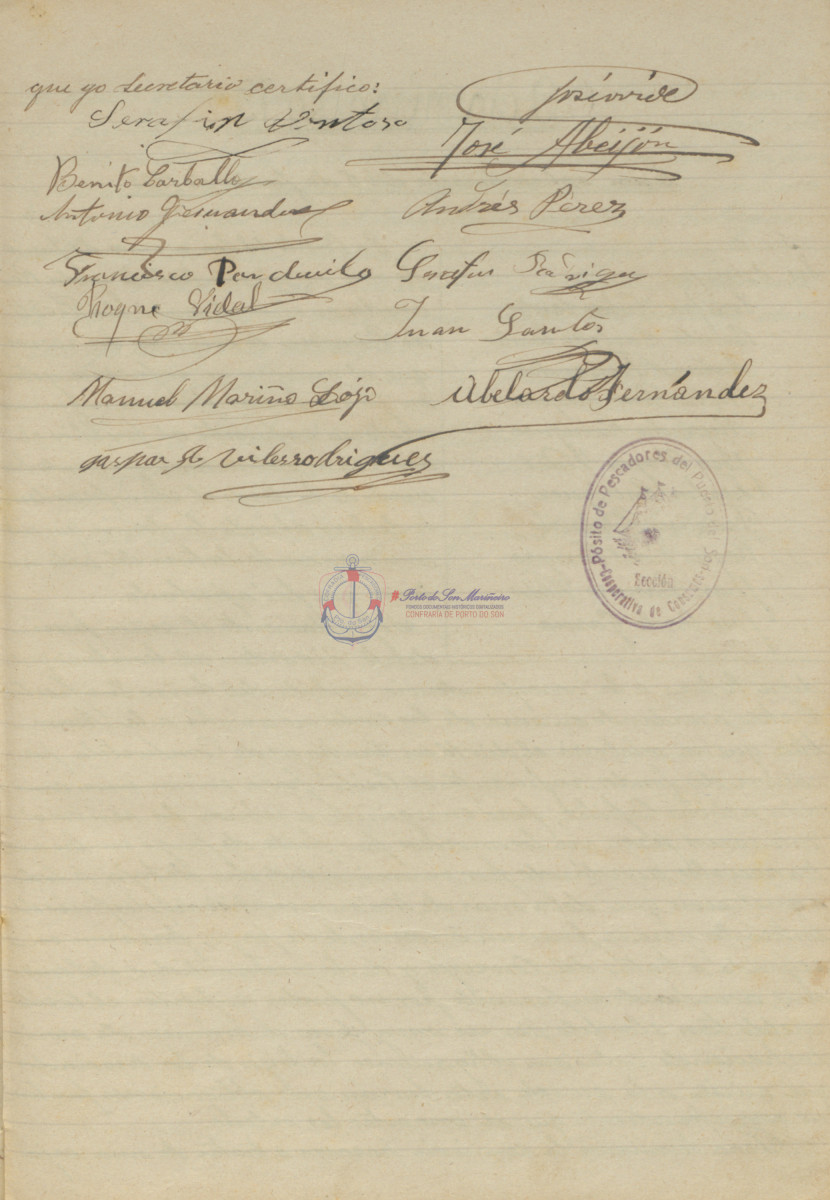 que yo Secretario certifico:
Serafin Ventoso
José
José Abeijón
Benito Carballo
Antonio Fernandez
Andrés Pérez
Francisco
Roque Vidal
Juan Santos
Manuel Mariño
Abelardo Fernández
gaspar
Pósito de Pescadores del Puerto del Son
Sección
Cooperativa de Consumo
Porto do Son Mariñeiro
FONDOS DOCUMENTAIS HISTÓRICOS DIXITALIZADOS
CONFRARÍA DE PORTO DO SON